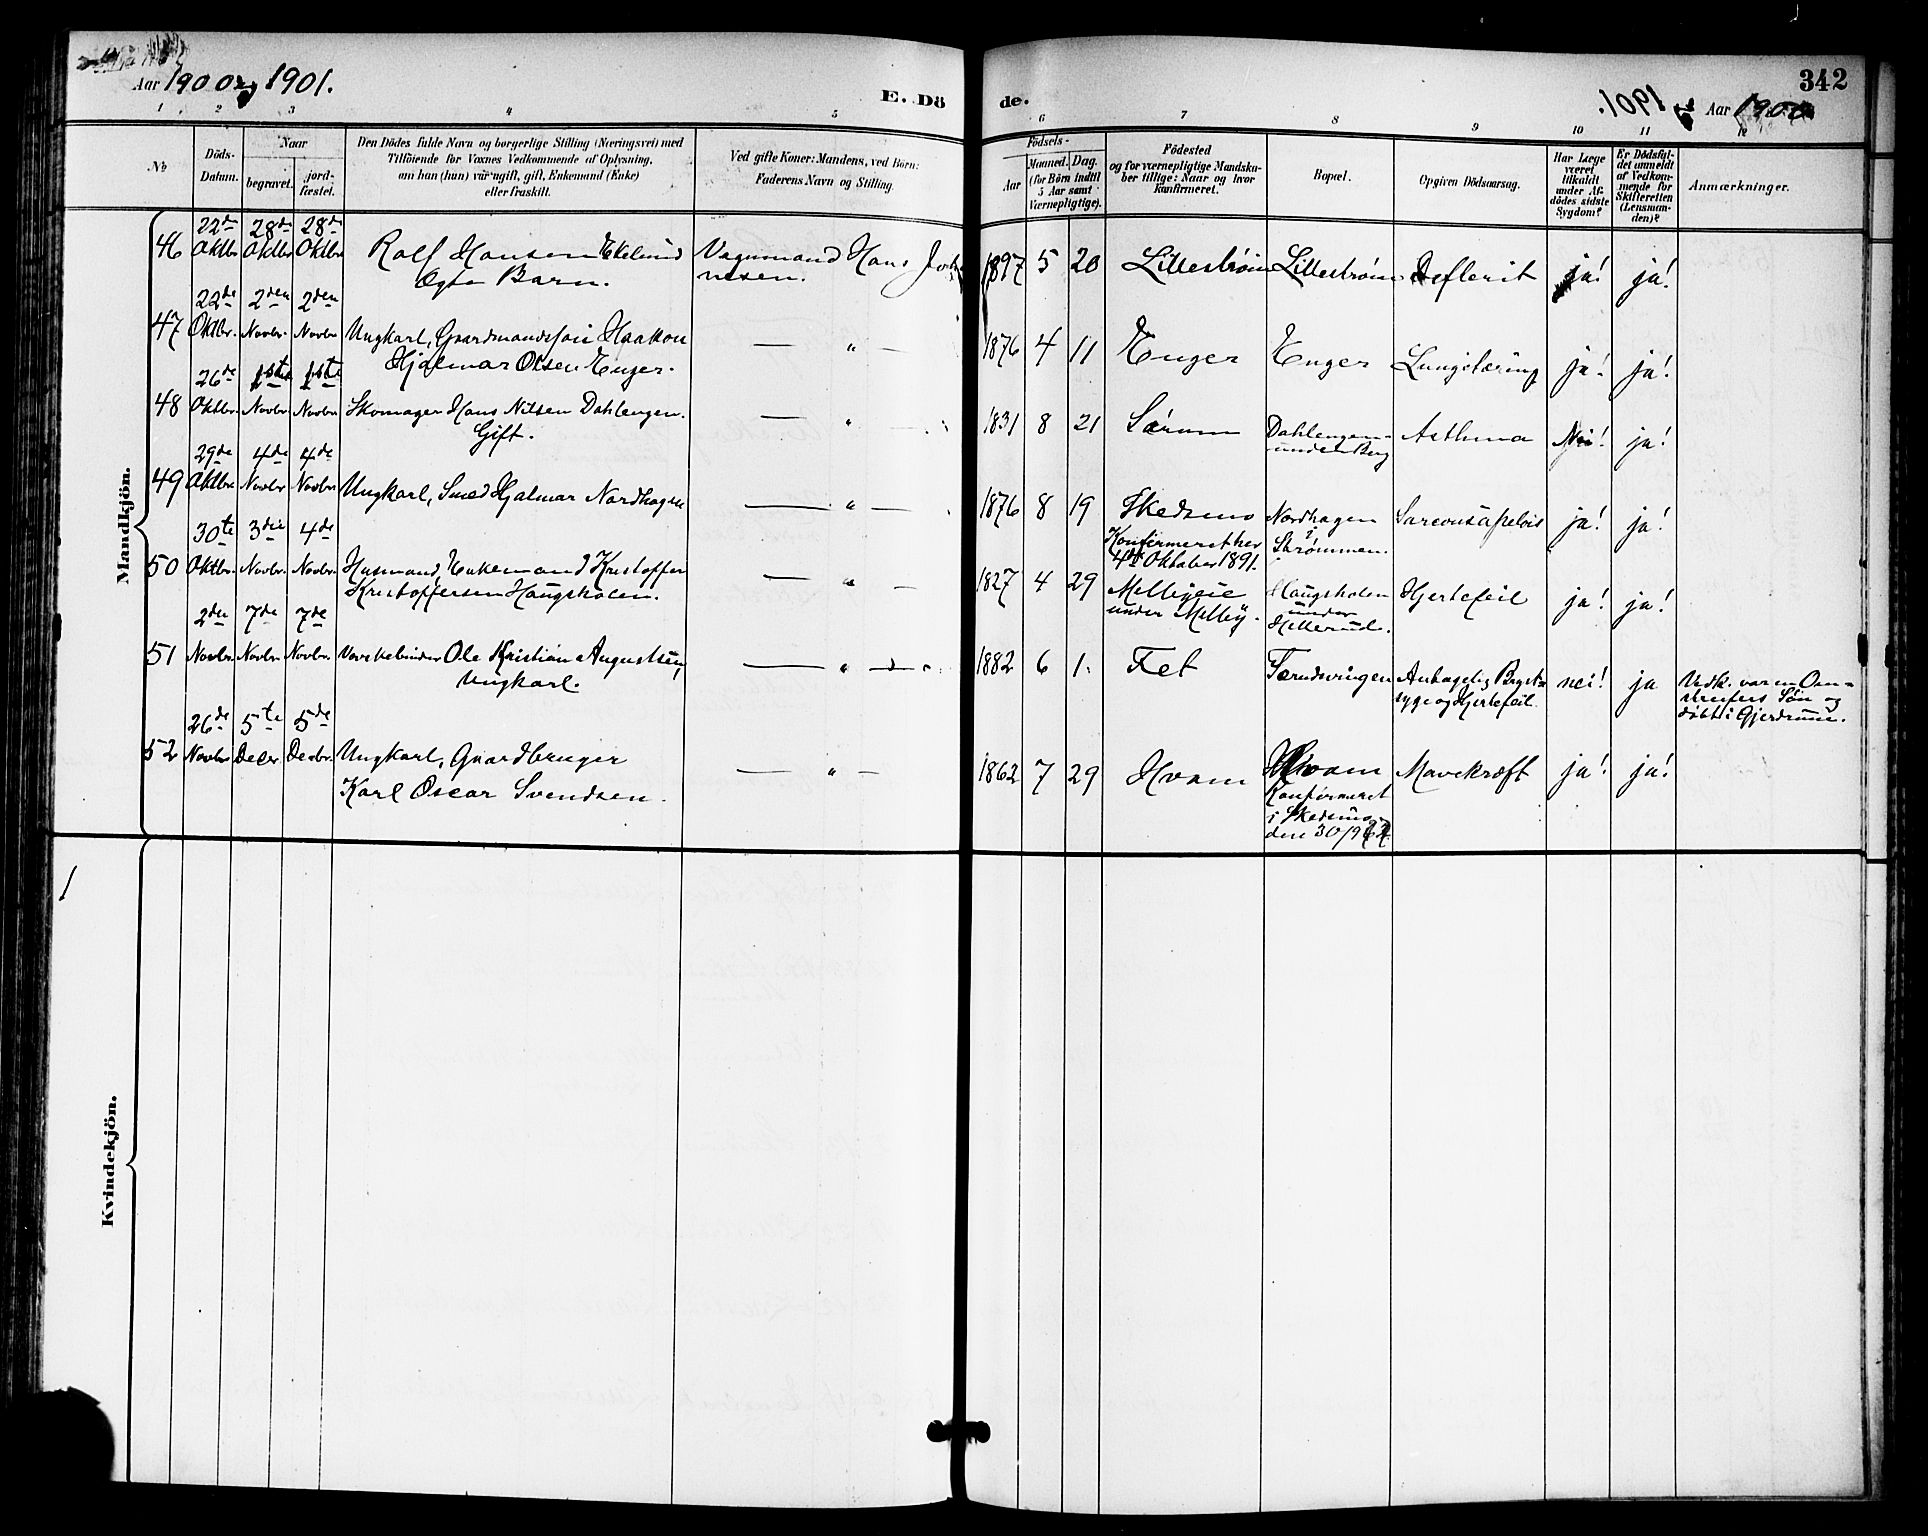 Aar 1900 og 1901.
E. Dö
de.
1901. og
Aar 1900
342
1 2 3 4 5 6 7 8 9 10 11 12
No
Döds-
Datum.
Naar
begravet.
jord-
fæstet.
Den Dödes fulde Navn og borgerlige Stilling (Næringsvei) med
Tilföiende for Voxnes Vedkommende af Oplysning,
om han (hun) var ugift, gift, Enkemand (Enke)
eller fraskilt.
Ved gifte Koner: Mandens, ved Börn:
Faderens Navn og Stilling.
Födsels-
Aar
Maaned. Dag.
(for Börn indtil
5 Aar samt
Værnepligtige).
Födested
og for værnepligtige Mandska-
ber tillige: Naar og hvor
konfirmeret.
Bopæl.
Opgiven Dödsaarsag.
Har Læge
været
tilkaldt
under Af-
dödes sidste
Sygdom?
Er Dödsfal-
det anmeldt
af Vedkom-
mende for
Skifteretten
(Lensman-
den)?
Anmærkninger.
Mandkjön.
22de 28de 28de
46 Oktbr Oktbr Oktbr Rolf Hansen Ekelund Vognmand Hans 1897 5 20 Lillestrøm Lillestrøm Defterit ja! ja!
Ægte Barn.
22de 2den 2den
47 Oktbr. Novbr. Novbr Ungkarl, Gaardmandssøn Haakon — " — 1876 4 11 Enger Enger Lungetæring ja! ja!
Hjalmar Olsen Enger.
26de 1ste 1ste
48 Oktbr. Novbr Novbr Skomager Hans Nilsen Dahlengen. — " — 1831 8 21 Sørum Dahlengen Asthma Nei! ja!
Gift. under Berg
29de 4de 4de
49 Oktbr Novbr Novbr Ungkarl, Smed Hjalmar Nordhagen — " — 1876 8 19 Skedsmo Nordhagen ja! ja!
Konfirmeret her i Strømmen.
4de Oktober 1891.
30te 3die 4de
50 Oktbr. Novbr. Novbr. Husmand, Enkemand Kristoffer — " — 1827 4 29 Mellbyeie Haugsholen Hjertefeil ja! ja!
Kristoffersen Haugsholen. under Mellby. under
Hellerud.
2den 7de 7de
51 Novbr. Novbr. Novbr. Ole Kristian Augustsen, — " — 1882 6 1. Fet Tærudsvingen Bryst- nei! ja Vedk. var en Om-
Ungkarl. syge og Hjertefeil. streifers Søn og
døbt i Gjerdrum.
26de 5te 5de
52 Novbr Decbr Decbr. Ungkarl, Gaardbruger — " — 1862 7 29 Hvam Hvam Mavekræft ja! ja!
Karl Oscar Svendsen. Konfirmeret
i Skedsmo
den 30/9
1
Kvindekjön.